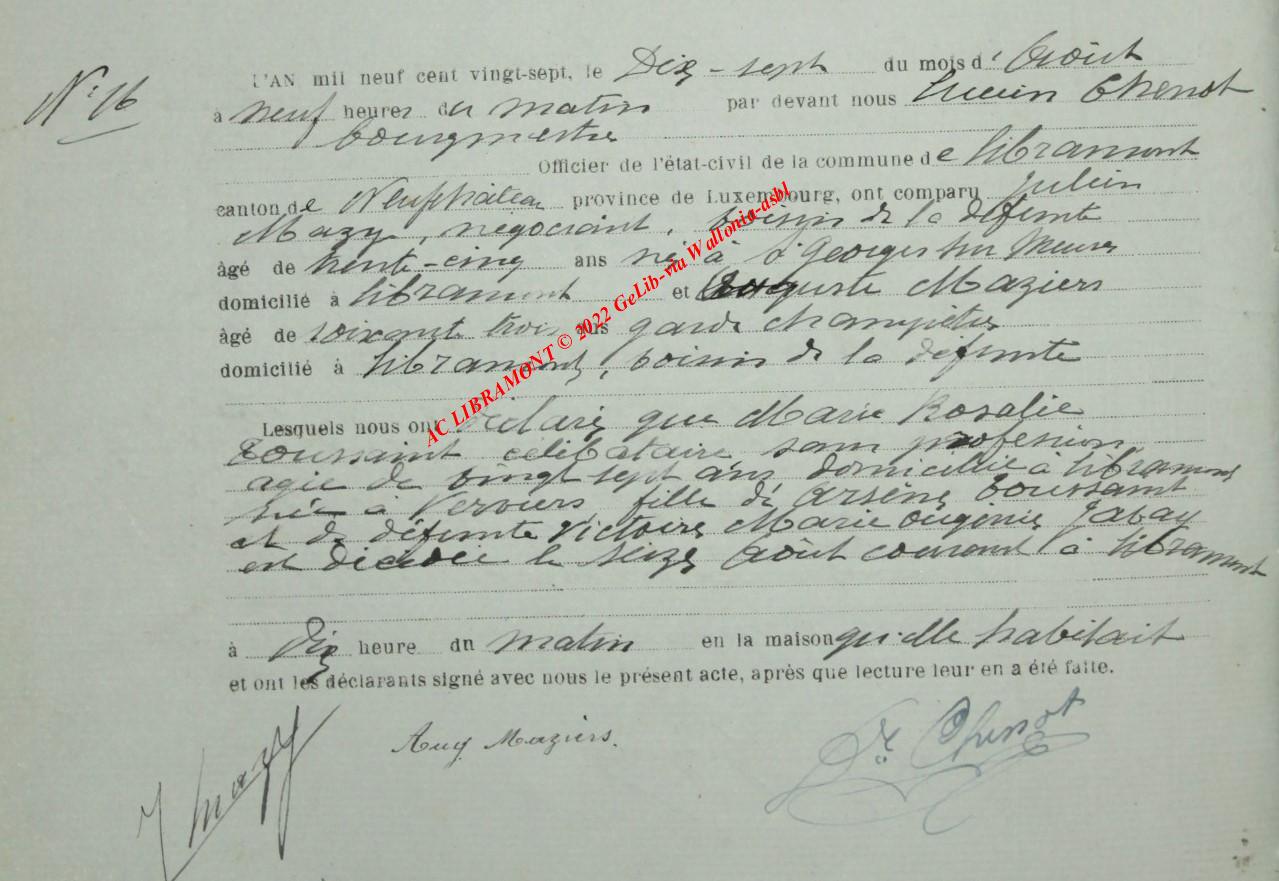 N° 16
L'AN mil neuf cent vingt-sept, le Dix-sept du mois d'Août
à neuf heures du matin par devant nous Lucien Chenot
bourgmestre
Officier de l'état-civil de la commune de Libramont
canton de Neufchâteau province de Luxembourg, ont comparu Julien
Mazy, négociant, voisin de la défunte
âgé de trente-cinq ans né à St Georges sur Meuse
domicilié à Libramont et Auguste Maziers
âgé de soixante trois ans garde champêtre
domicilié à Libramont, voisin de la défunte
Lesquels nous ont déclaré que Marie Rosalie
Toussaint célibataire sans profession,
agée de vingt sept ans, domiciliée à Libramont
née à Verviers, fille de Arsène Toussaint
et de défunte Victoire Marie Eugénie Jabay
est décédée le seize Août courant à Libramont
à Dix heure du matin en la maison qu'elle habitait
et ont les déclarants signé avec nous le présent acte, après que lecture leur en a été faite.
J Mazy
Aug Maziers.
Dr Chenot
AC LIBRAMONT © 2022 GeLib-via Wallonia-asbl